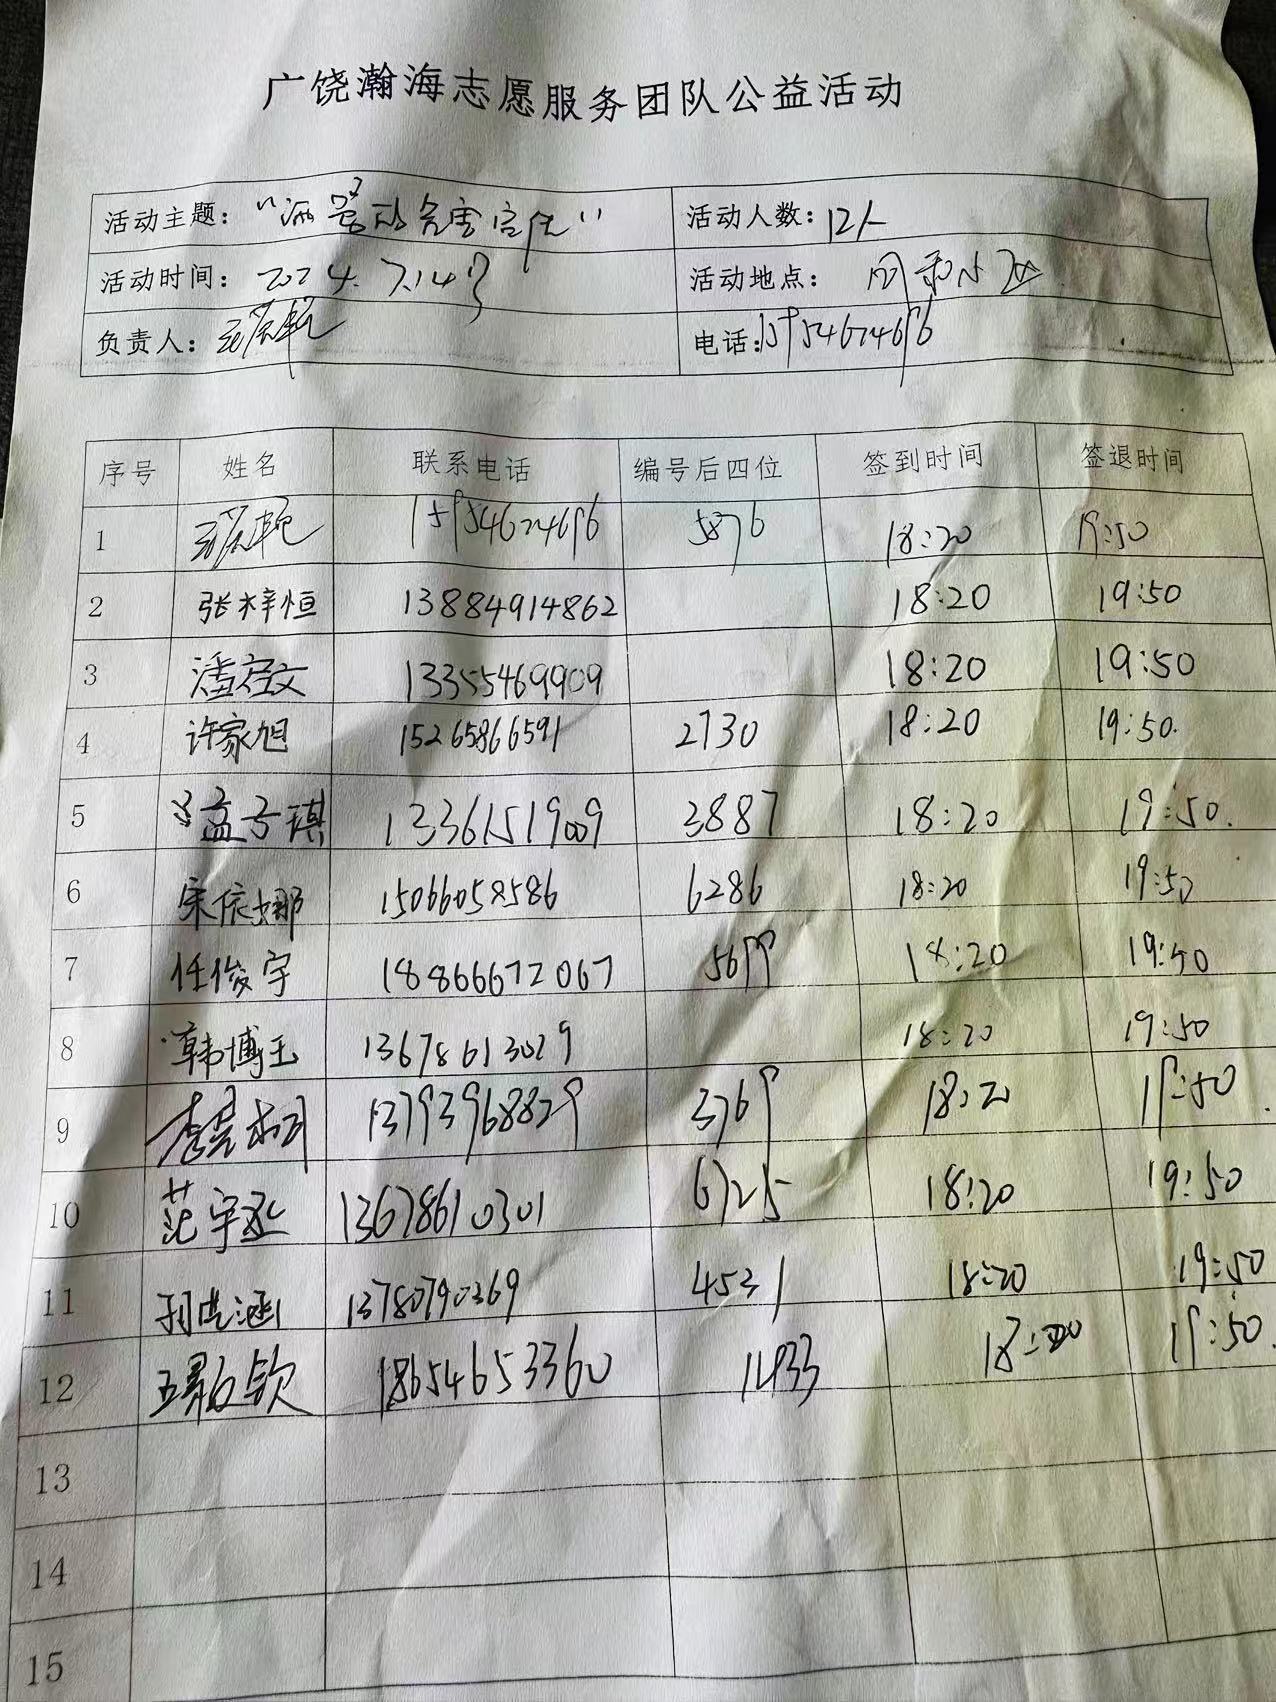 广饶瀚海志愿服务团队公益活动
活动主题： 活动人数：12人
活动时间：2024.7.14号 活动地点：
负责人： 电话：15954674696
序号 姓名 联系电话 编号后四位 签到时间 签退时间
1 15954674696 5876 18:20 19:50
2 张梓恒 13884914862 18:20 19:50
3 潘启文 13355469909 18:20 19:50
4 许家旭 15265866591 2730 18:20 19:50.
5 孟子琪 13361519009 3887 18:20 19:50.
6 宋依娜 15066058586 6286 18:20 19:50
7 任俊宇 18866672067 5699 18:20 19:50
8 韩博玉 13678613029 18:20 19:50
9 13793968829 3769 18:20 19:50.
10 范宇丞 13678610301 6725 18:20 19:50
11 13780790369 4531 18:20 19:50
12 18654653360 18:20 19:50.
13
14
15